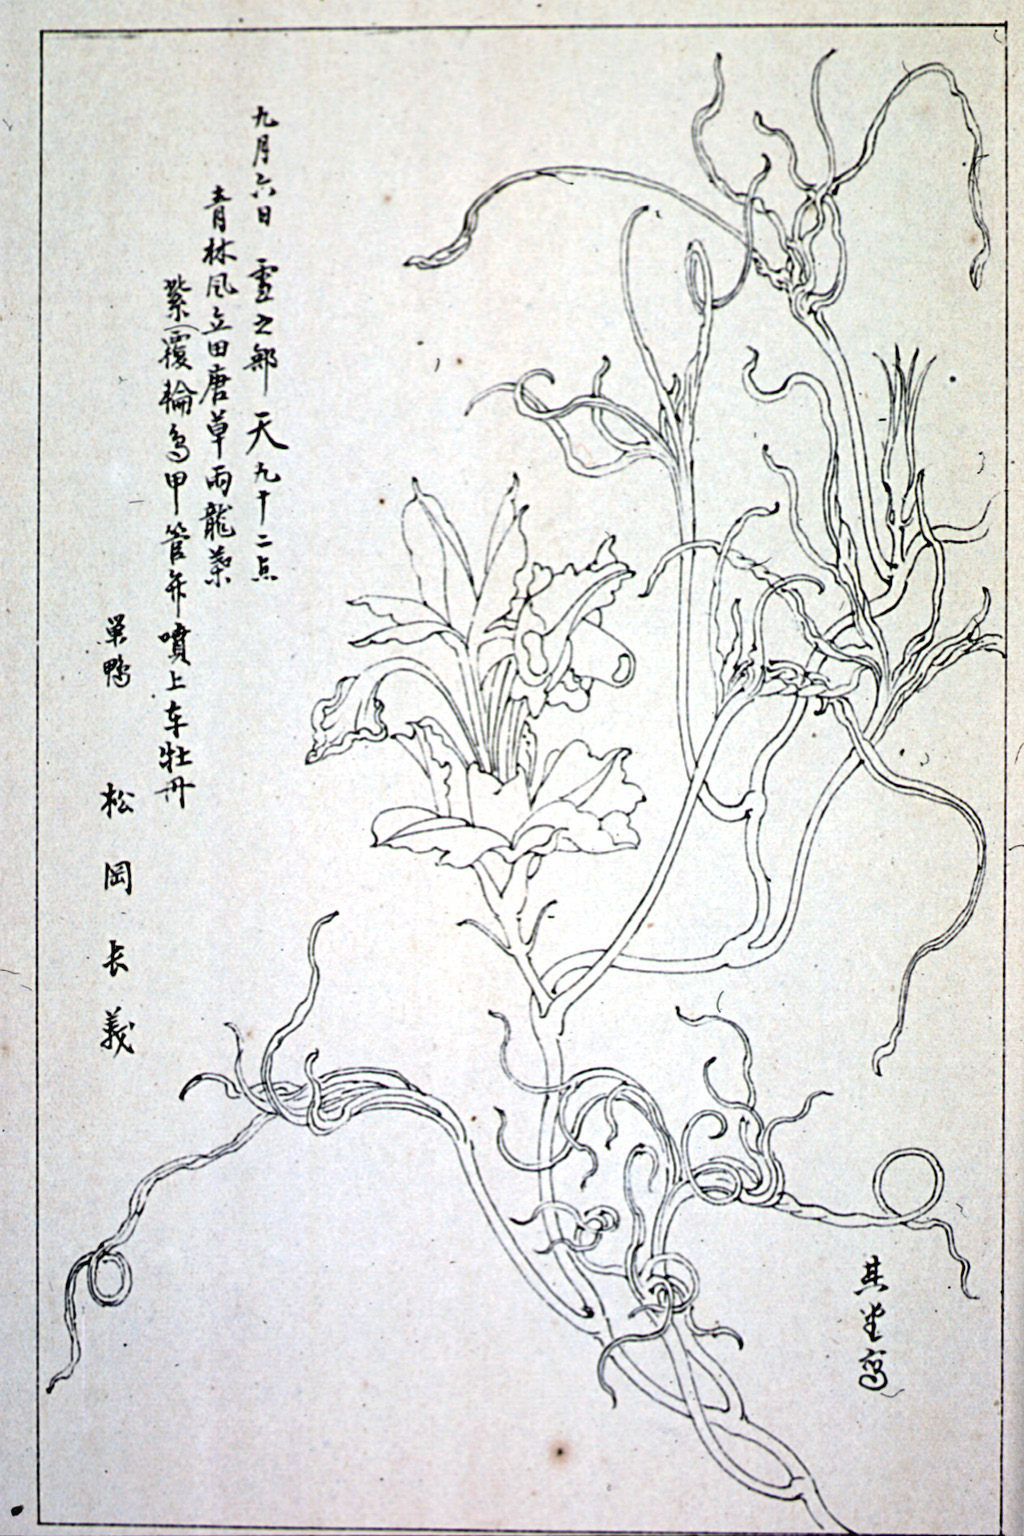 九月六日 霊之部 天九十二点
青林風立田唐草雨龍葉
紫覆輪鳥甲管弁噴上车牡丹
巣鴨 松岡长義
其堂寫